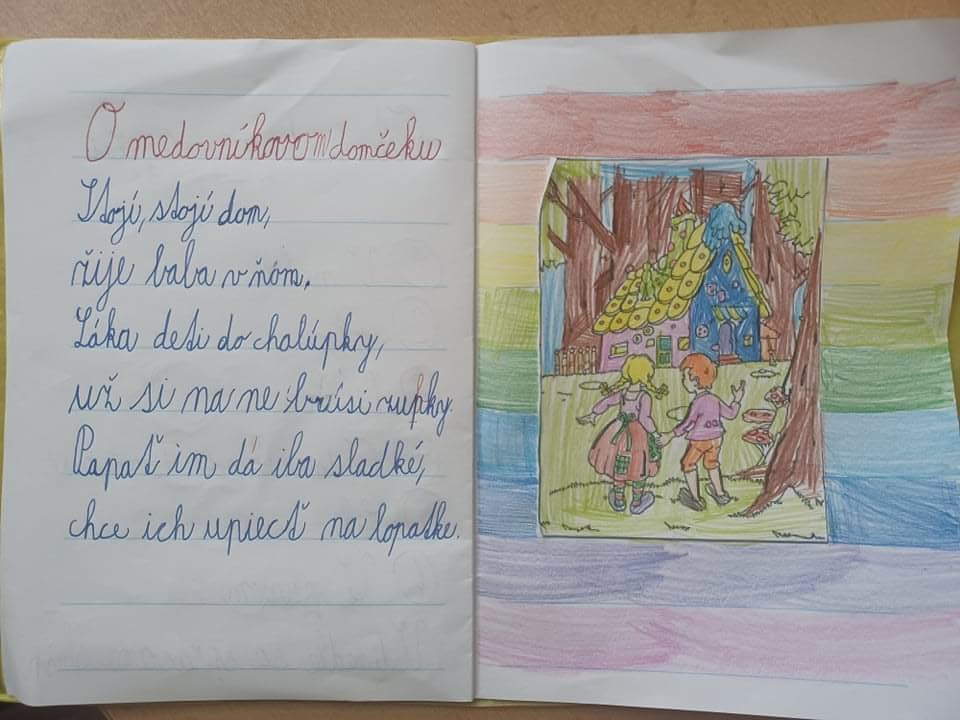 O medovníkovom domčeku
Stojí, stojí dom,
žije baba v ňom.
Láka deti do chalúpky,
už si na ne brúsi zupky.
Papať im dá iba sladké,
chce ich upiecť na lopatke.